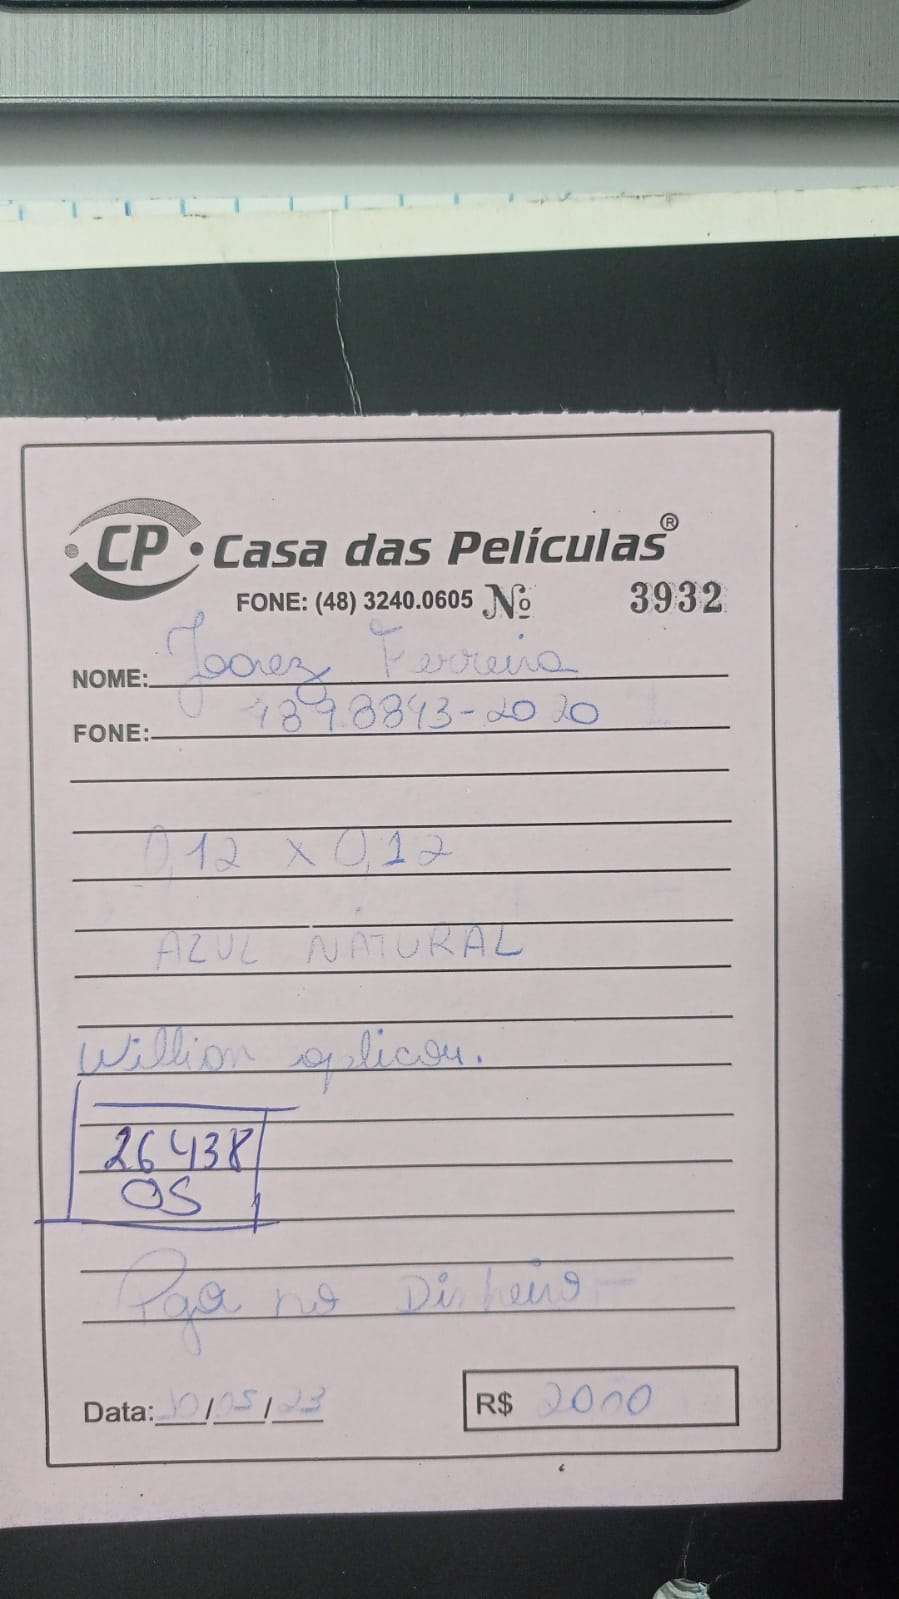 CP Casa das Películas®
FONE: (48) 3240.0605 Nº 3932
NOME: Joarez Ferreira
FONE: 489.8843-2020
0,12 x 0,12
AZUL NATURAL
Willian aplicou.
26438
OS
Pga no Dinheiro
Data: /05/23 R$ 2000